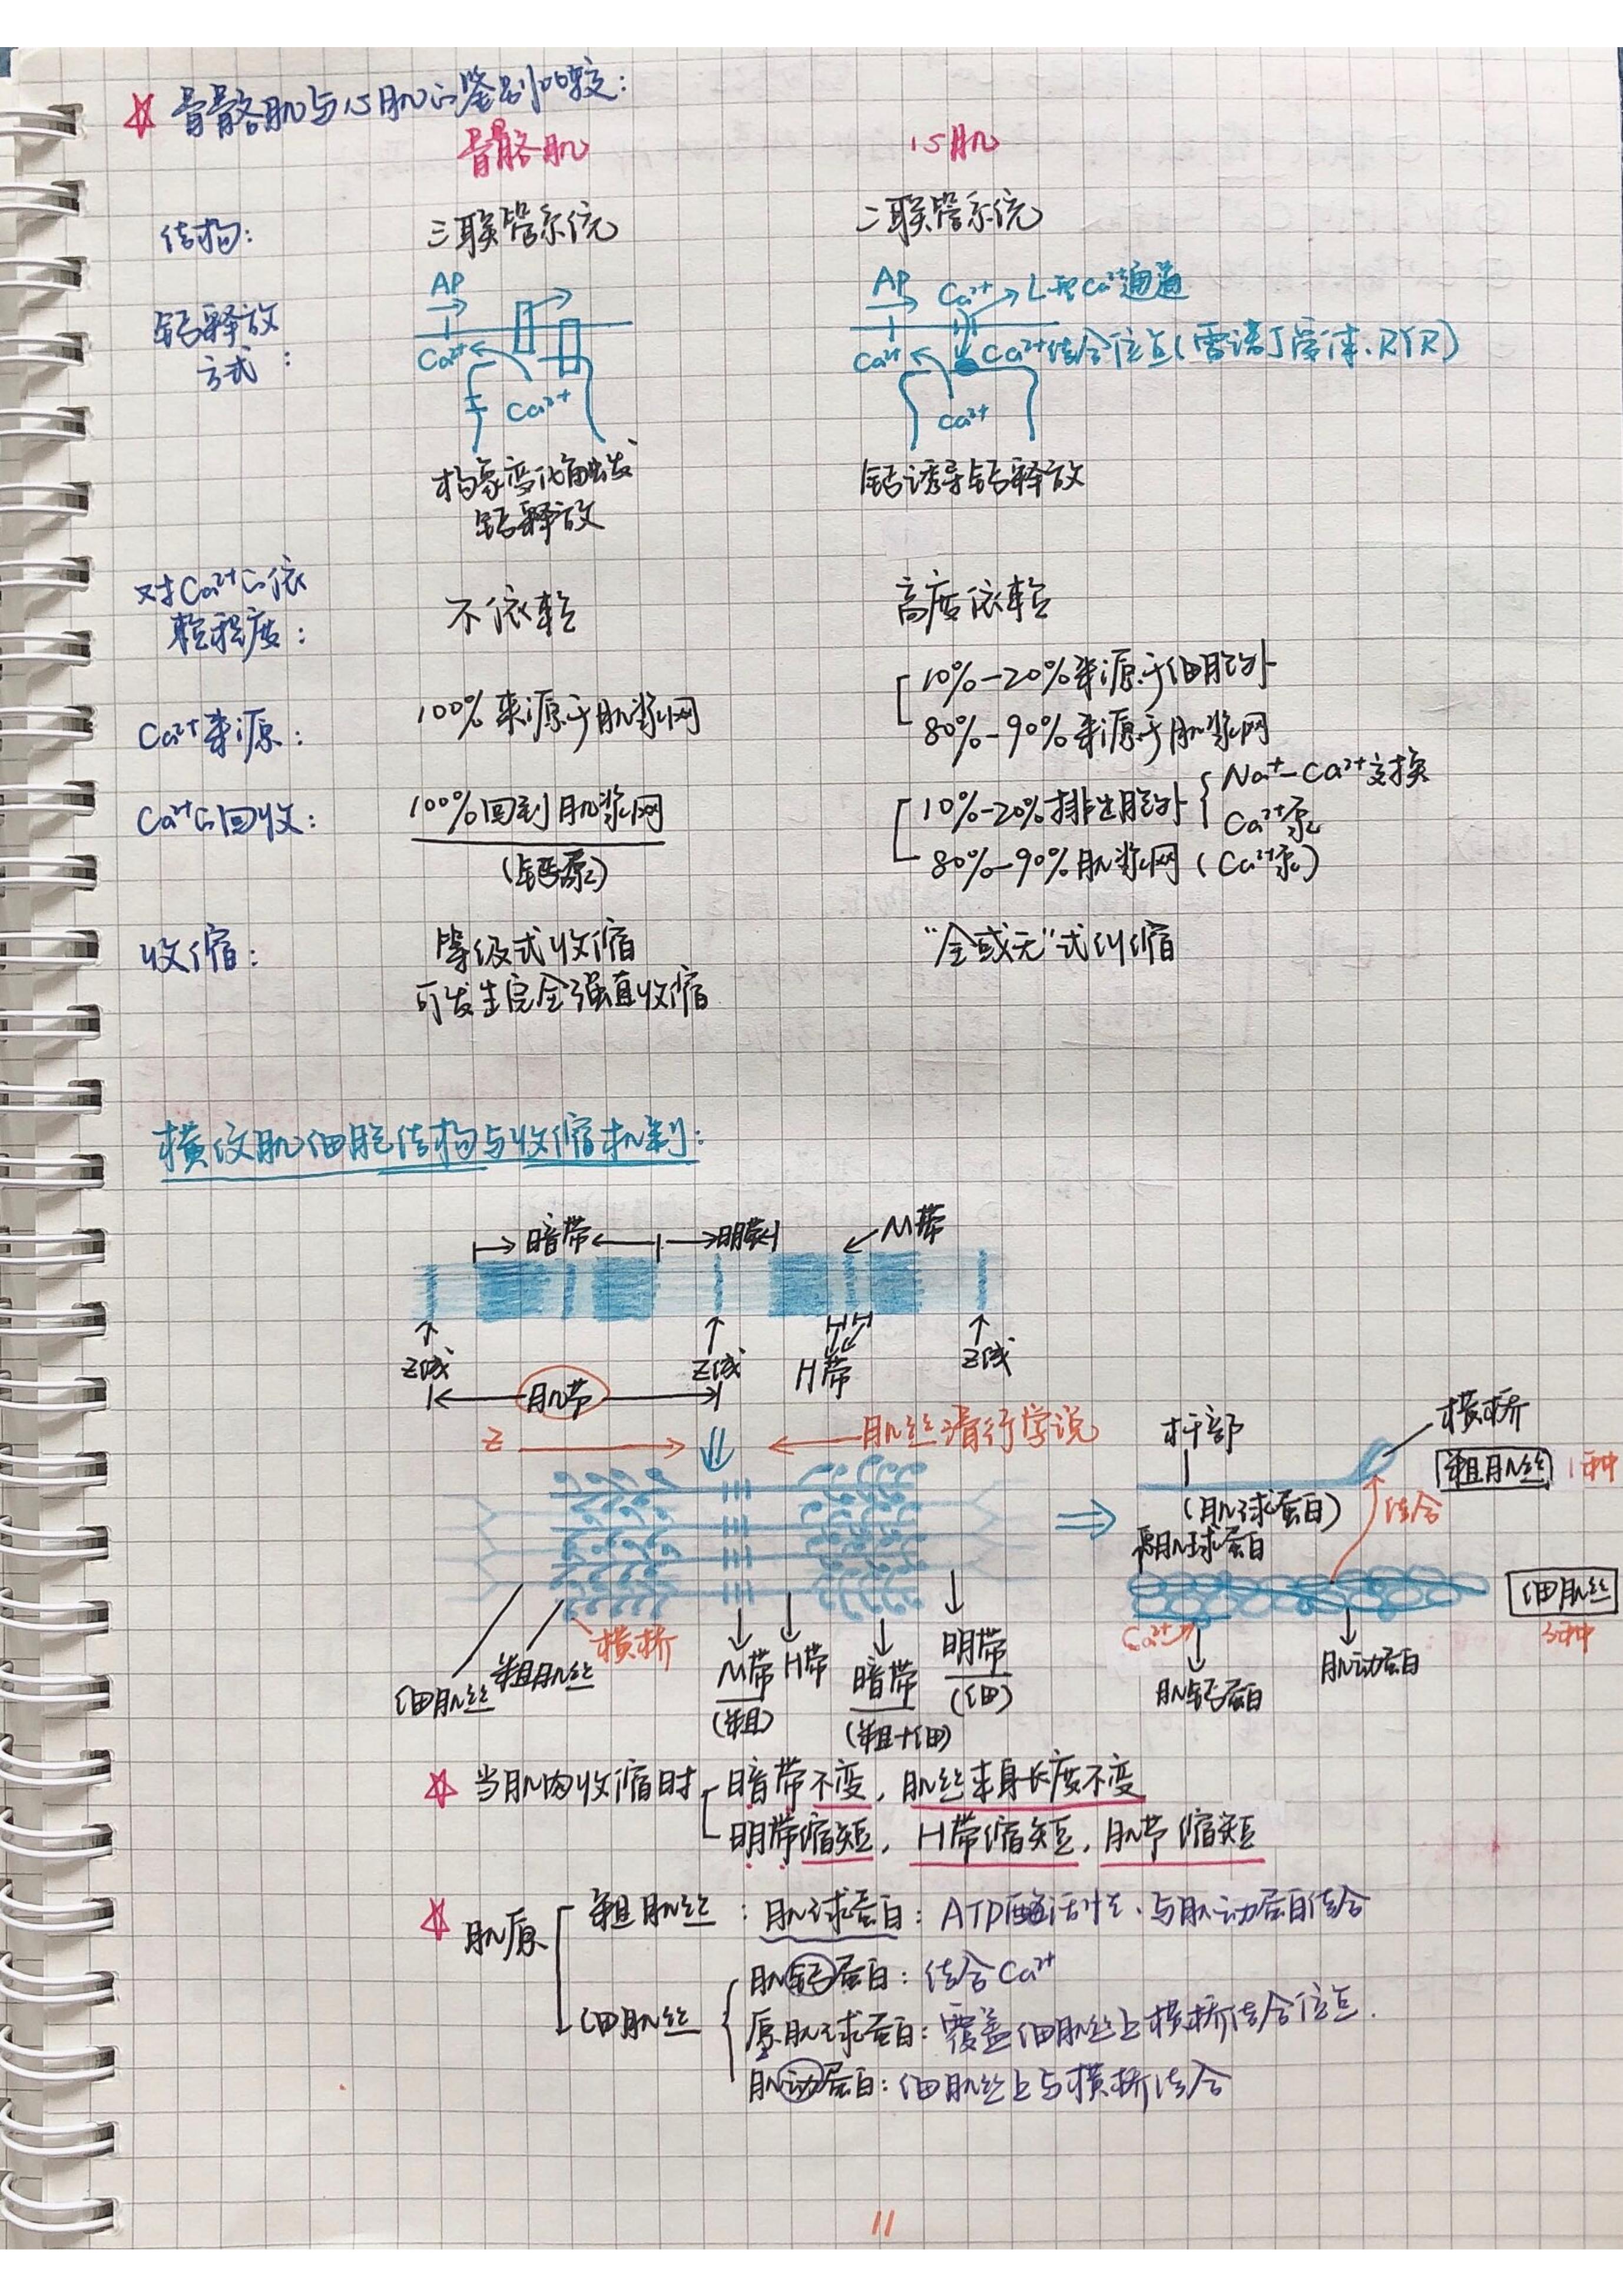 ☆ 骨骼肌与心肌的鉴别比较:
骨骼肌 心肌
结构: 三联管系统 二联管系统
钙释放方式: AP Ca²⁺ Ca²⁺
AP Ca²⁺ L-型Ca²⁺通道
Ca²⁺ Ca²⁺结合位点(雷诺丁受体、RYR)
Ca²⁺
构象变化触发钙释放 钙诱导钙释放
对Ca²⁺的依赖程度: 不依赖 高度依赖
Ca²⁺来源: 100%来源于肌浆网 10%-20%来源于细胞外
80%-90%来源于肌浆网
Ca²⁺的回收: 100%回到肌浆网 10%-20%排出胞外 Na⁺-Ca²⁺交换
Ca²⁺泵
(钙泵) 80%-90%肌浆网(Ca²⁺泵)
收缩: 等级式收缩 "全或无"式收缩
可发生完全强直收缩
横纹肌细胞结构与收缩机制:
暗带 明带 M带
Z线 Z线 H带 Z线
肌带
Z 肌丝滑行学说
杆部 横桥
粗肌丝 1种
(肌球蛋白) 结合
原肌球蛋白
细肌丝
3种
Ca²⁺
肌钙蛋白 肌动蛋白
细肌丝 粗肌丝 横桥 M带 H带 暗带 明带
(粗) (粗+细) (细)
☆ 当肌肉收缩时 暗带不变, 肌丝本身长度不变
明带缩短, H带缩短, 肌节缩短
☆ 肌原 粗肌丝: 肌球蛋白: ATP酶活性、与肌动蛋白结合
细肌丝 肌钙蛋白: 结合Ca²⁺
原肌球蛋白: 覆盖细肌丝上横桥结合位点.
肌动蛋白: 细肌丝上与横桥结合
11